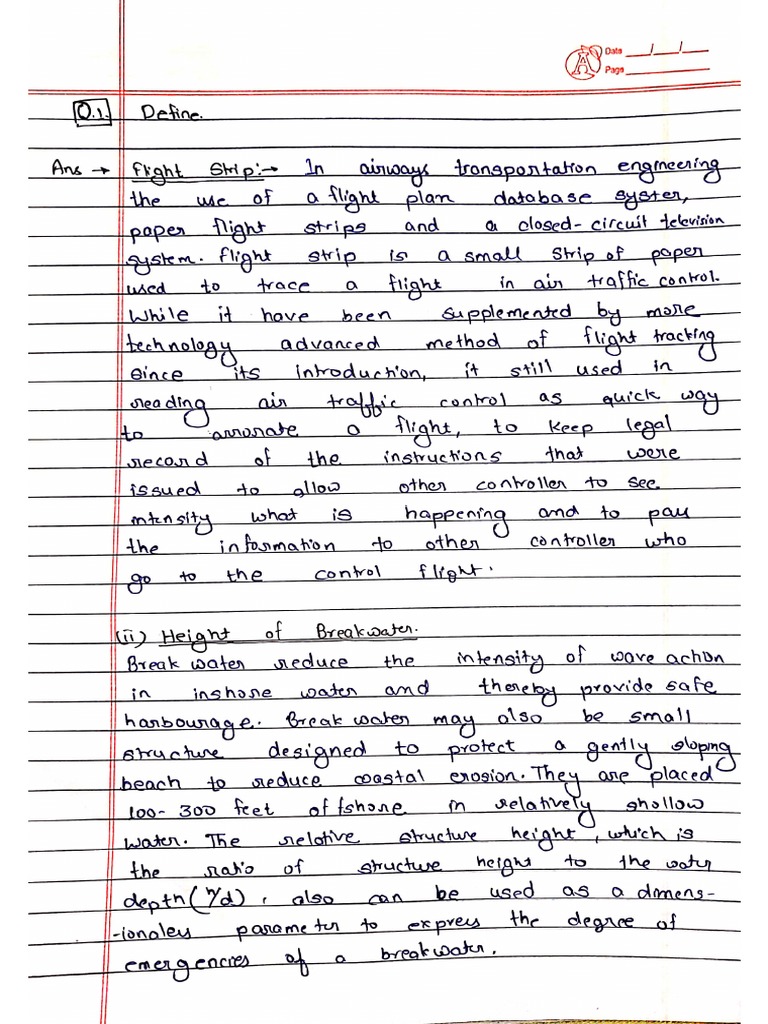 A Date __/__/__
Page
Q.1. Define.
Ans → Flight Strip:→ In airways transportation engineering
the use of a flight plan database syster,
paper flight strips and a closed-circuit television
system. flight strip is a small strip of paper
used to trace a flight in air traffic control.
While it have been supplemented by more
technology advanced method of flight tracking
since its introduction, it still used in
reading air traffic control as quick way
to arrorate a flight, to keep legal
record of the instructions that were
issued to allow other controller to see
intensity what is happening and to pass
the information to other controller who
go to the control flight.
(ii) Height of Breakwater.
Break water reduce the intensity of wave action
in inshore water and thereby provide safe
harbourage. Break water may also be small
structure designed to protect a gently sloping
beach to reduce coastal erosion. They are placed
100-300 feet offshore in relatively shollow
water. The relative structure height, which is
the ratio of structure height to the water
depth (h/d), also can be used as a dimens-
-ionaless parameter to express the degree of
emergencies of a breakwater.